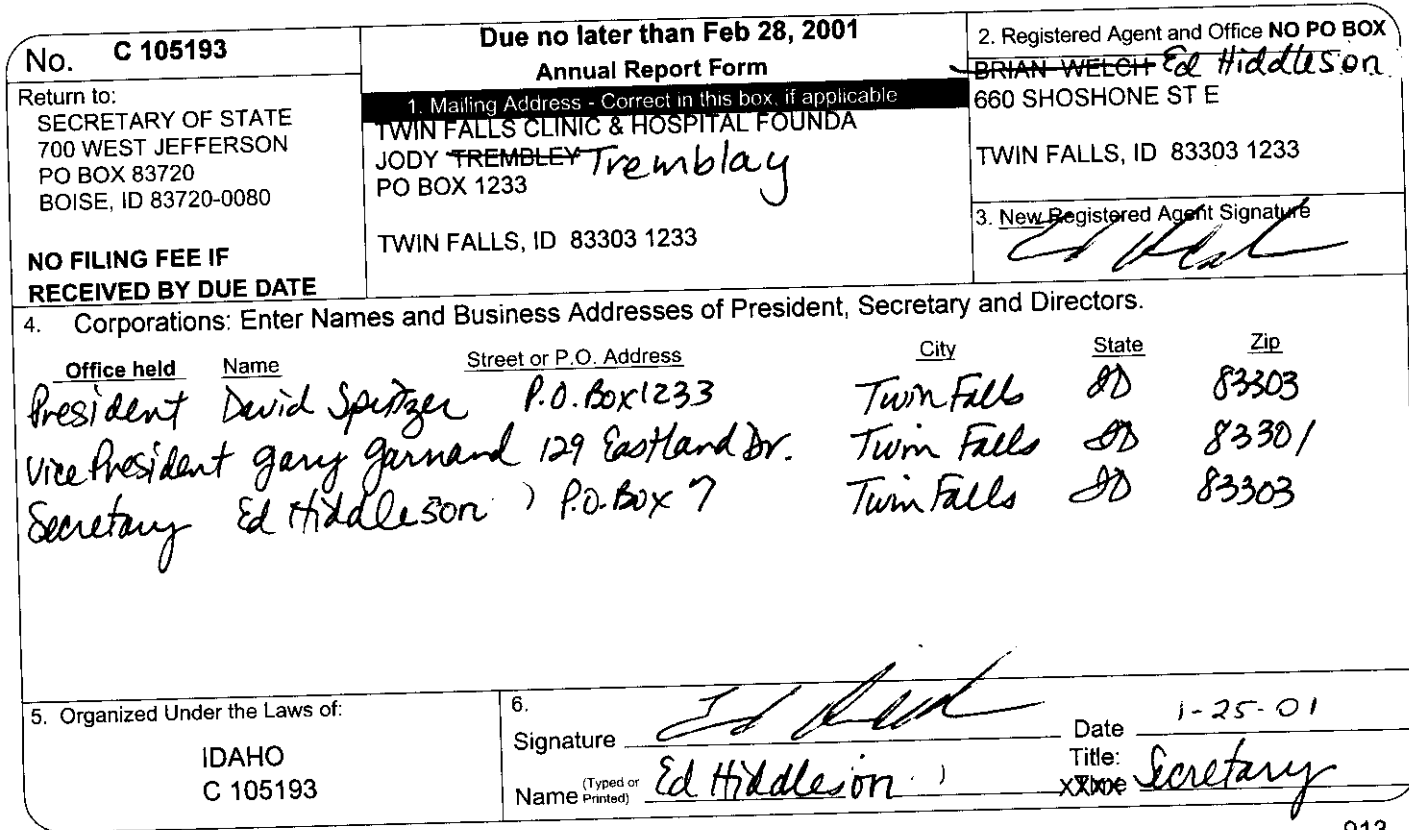 No. C 105193
Return to:
SECRETARY OF STATE
700 WEST JEFFERSON
PO BOX 83720
BOISE, ID 83720-0080
NO FILING FEE IF
RECEIVED BY DUE DATE
Due no later than Feb 28, 2001
Annual Report Form
1. Mailing Address - Correct in this box, if applicable
TWIN FALLS CLINIC & HOSPITAL FOUNDA
JODY TREMBLEY Tremblay
PO BOX 1233
TWIN FALLS, ID 83303 1233
2. Registered Agent and Office NO PO BOX
BRIAN WELCH Ed Hiddleson
660 SHOSHONE ST E
TWIN FALLS, ID 83303 1233
3. New Registered Agent Signature
4. Corporations: Enter Names and Business Addresses of President, Secretary and Directors.
Office held Name Street or P.O. Address City State Zip
President David Spitzer P.O. Box 1233 Twin Falls ID 83303
Vice President Gary Garnand 129 Eastland Dr. Twin Falls ID 83301
Secretary Ed Hiddleson P.O. Box 7 Twin Falls ID 83303
5. Organized Under the Laws of:
IDAHO
C 105193
6.
Signature Date 1-25-01
Name (Typed or Printed) Ed Hiddleson Title: Secretary